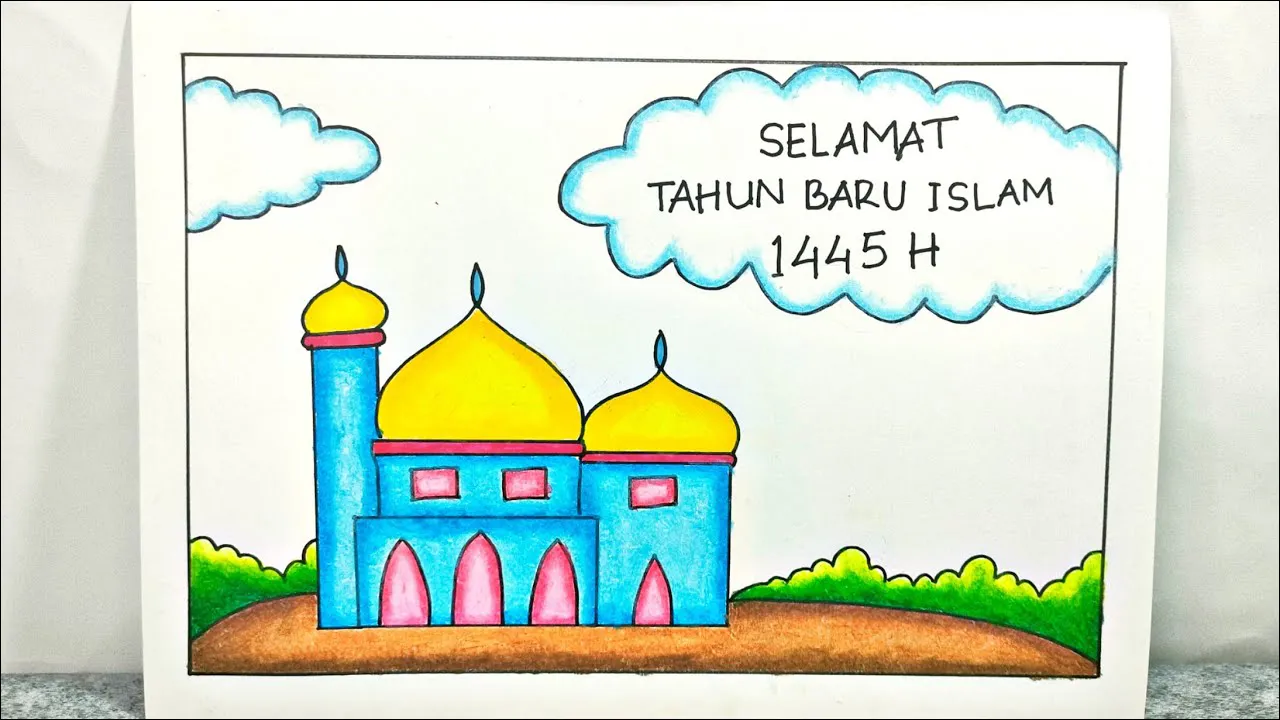 SELAMAT
TAHUN BARU ISLAM
1445 H